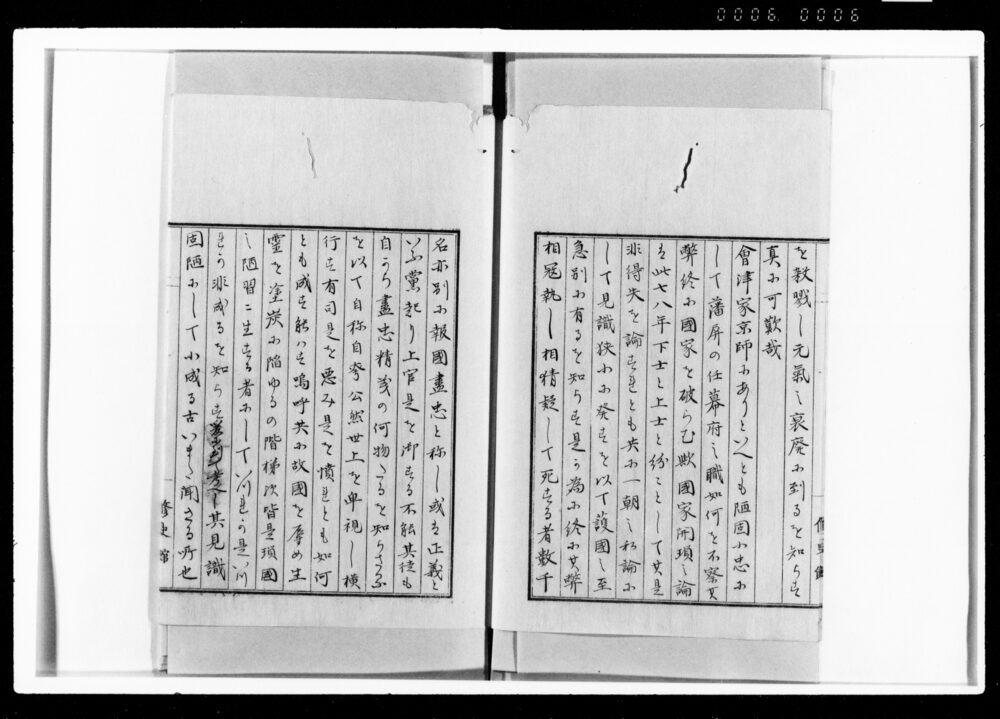 0006 0006
を敎戮し元氣之衰廃ニ到るを知らす
真ニ可歎哉
會津家京師ニありといへとも陋固小忠ニ
して藩屏の任幕府之職如何を不察其
弊終ニ國家を破らむ歟國家閑瑣之論
は此七八年下士と上士と紛々として其是
非得失を論すれとも共ニ一朝之私論ニ
して見識狭小ニ癸すを以て護國之至
急別ニ有るを知らす是か為ニ終ニ其弊
相冠執し相精疑して死する者数千
名亦別ニ報國盡忠と称し或は正義と
いふ黨起り上官是を御する不能其徒も
自から盡忠精義の何物たるを知らさるふ
を以て自称自夸公然世上を卑視し横
行す有司是を悪み是を憤れとも如何
とも成す能はす嗚呼共ニ故國を辱め生
霊を塗炭ニ陥ゆるの階梯次皆是瑣國
之陋習ニ生する者ニして何れか是何
れか非成るを知らす其見識
固陋ニして小成る古いまた聞さる所也
修史館